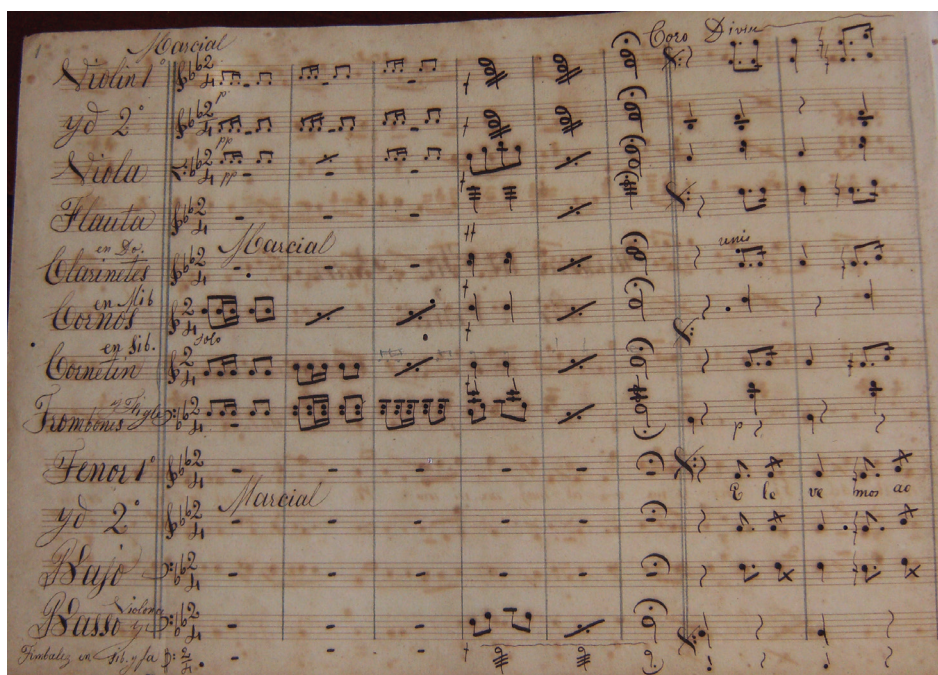 1 Marcial Coro Divin
Violin 1°
p
yd 2°
pp
Viola
pp
Flauta
Marcial
en Do. unis
Clarinetes
en Mib
Cornos
Solo
en Sib.
Cornetin
y Figle
Trombones
p
Tenor 1°
E le ve mos ac
Marcial
yd 2°
Bajo
Violones
Basso y
Timbales en Sib. y fa